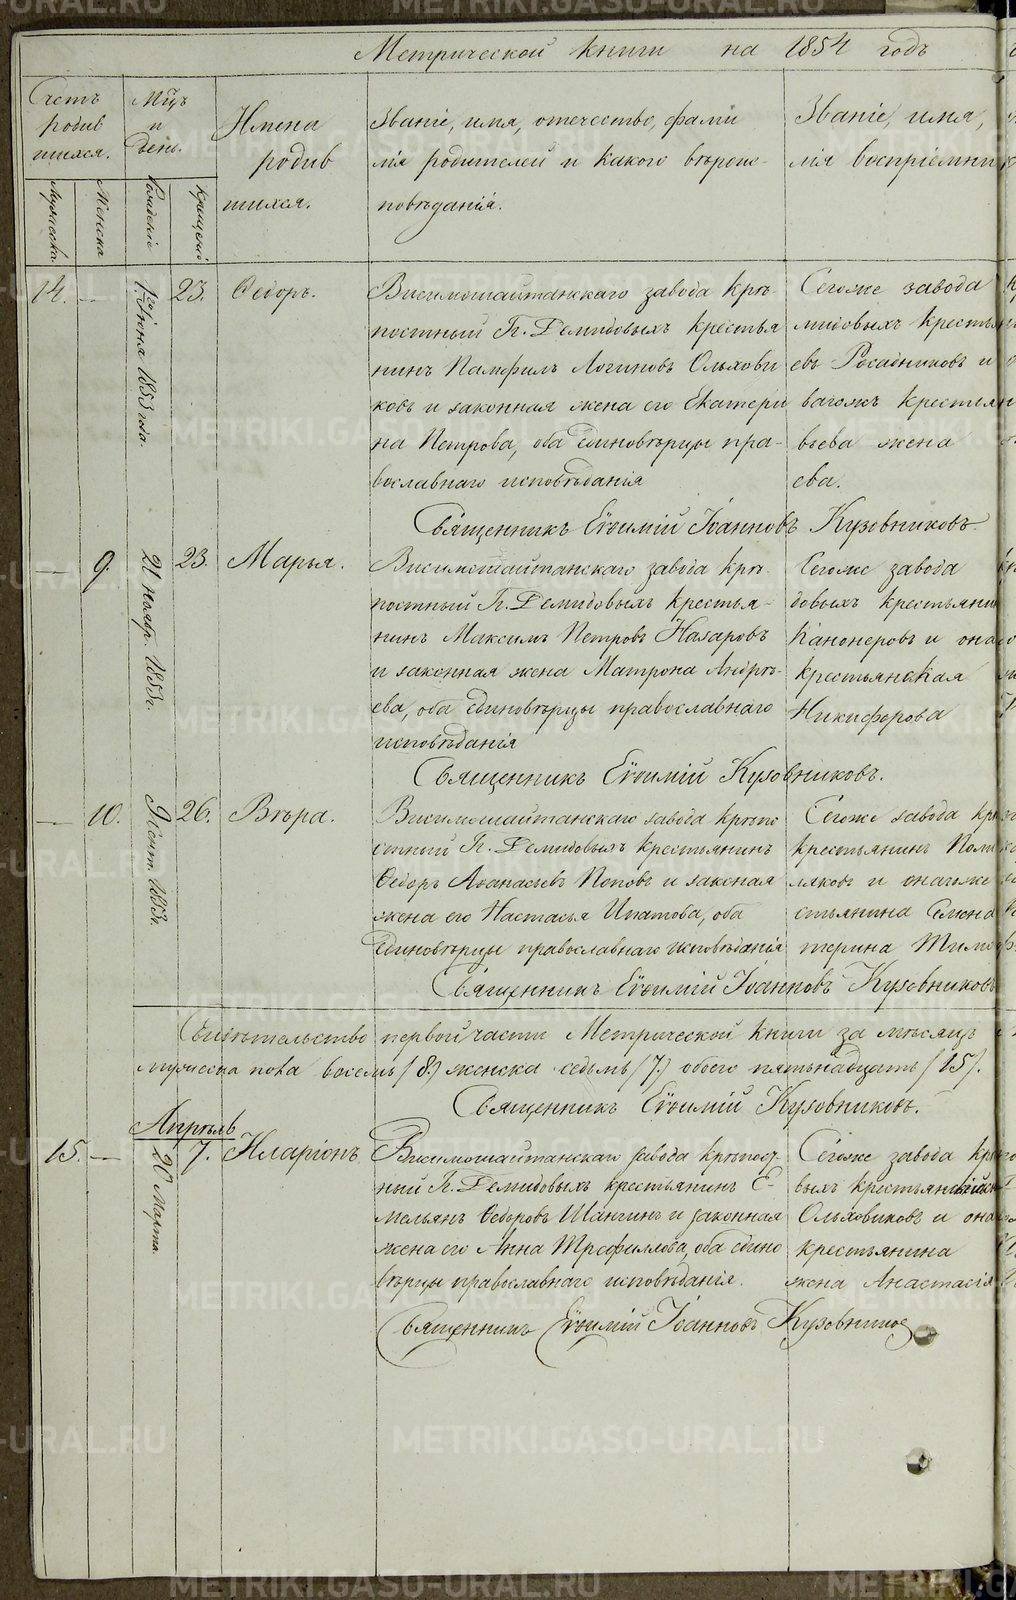 Метрической книги на 1854 годъ
Счетъ родив шихся.
Мѣцъ и день.
Имена родив шихся.
Званіе, имя, отечество, фами
лія родителей и какого вѣроис-
повѣданія.
Званіе, имя,
лія воспріемни
Мужеска.
Женска
Рожденія
Крещенія
14. — 23. Ѳедоръ.
Іюня 1853 года
Висимошайтанскаго завода крѣ-
постный Гг. Демидовыхъ крестья
нинъ Памфилъ Логиновъ Ольхови
ковъ и законная жена его Екатери
на Петрова, оба единовѣрцы пра-
вославнаго исповѣданія
Сегоже завода
мидовыхъ крестьян
евъ Росадниковъ и
вагожъ крестьян
вьева жена
ева.
Священникъ Евѳимій Іоанновъ Кузовниковъ
— 9. 23. Марья.
21 нояб. 1853 г.
Висимошайтанскаго завода крѣ-
постный Гг. Демидовыхъ крестья-
нинъ Максимъ Петровъ Назаровъ
и законная жена Матрона Андрѣ-
ева, оба единовѣрцы православнаго
исповѣданія
Сегоже завода
довыхъ крестьяни
Канонеровъ и она
крестьянская
Никифорова
Священникъ Евѳимій Кузовниковъ.
— 10. 26. Вѣра.
Сент. 1853 г.
Висимошайтанскаго завода крѣпо
стный Гг. Демидовыхъ крестьянинъ
Ѳедоръ Аѳанасьевъ Поповъ и законая
жена его Настасья Ипатова, оба
единовѣрцы православнаго исповѣданія
Сегоже завода крѣ
крестьянинъ Поли
ляковъ и онагоже
стьянина Семена
терина Тимоф
Священникъ Евѳимій Іоанновъ Кузовниковъ
Свидѣтельство первой части Метрической книги за мѣсяцъ
мужеска пола восемь (8.) женска седьмь (7.) обоего пятьнадцать (15).
Священникъ Евѳимій Кузовниковъ.
Апрѣль
15. — 7. Иларіонъ
20 Марта.
Висимошайтанскаго завода крѣпост
ный Гг. Демидовыхъ крестьянинъ Е-
мельянъ Ѳедоровъ Шангинъ и законная
жена его Анна Трефиллова, оба едино
вѣрцы православнаго исповѣданія.
Сегоже завода крѣ
выхъ крестьянскій
Ольховиковъ и она
крестьянина
жена Анастасія
Священникъ Евѳимій Іоанновъ Кузовников
METRIKI.GASO-URAL.RU